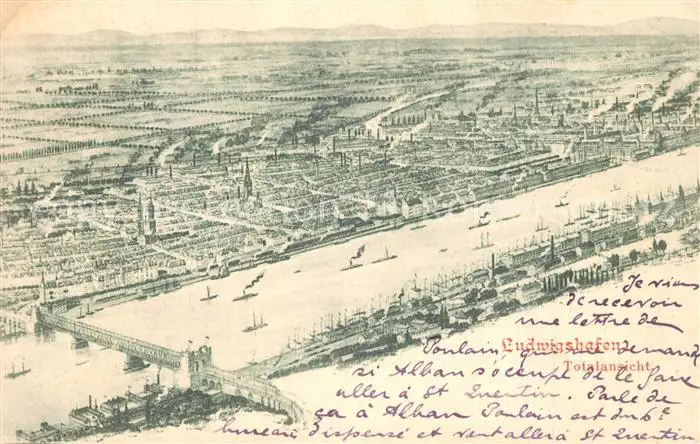 Je viens
de recevoir
une lettre de
Ludwigshafen
Poulain, qui me demande
Totalansicht.
si Alban s'occupe de le faire
aller à St Quentin. Parle de
ça à Alban Poulain est du 6e
bureau dispensé et veut aller à St Quentin